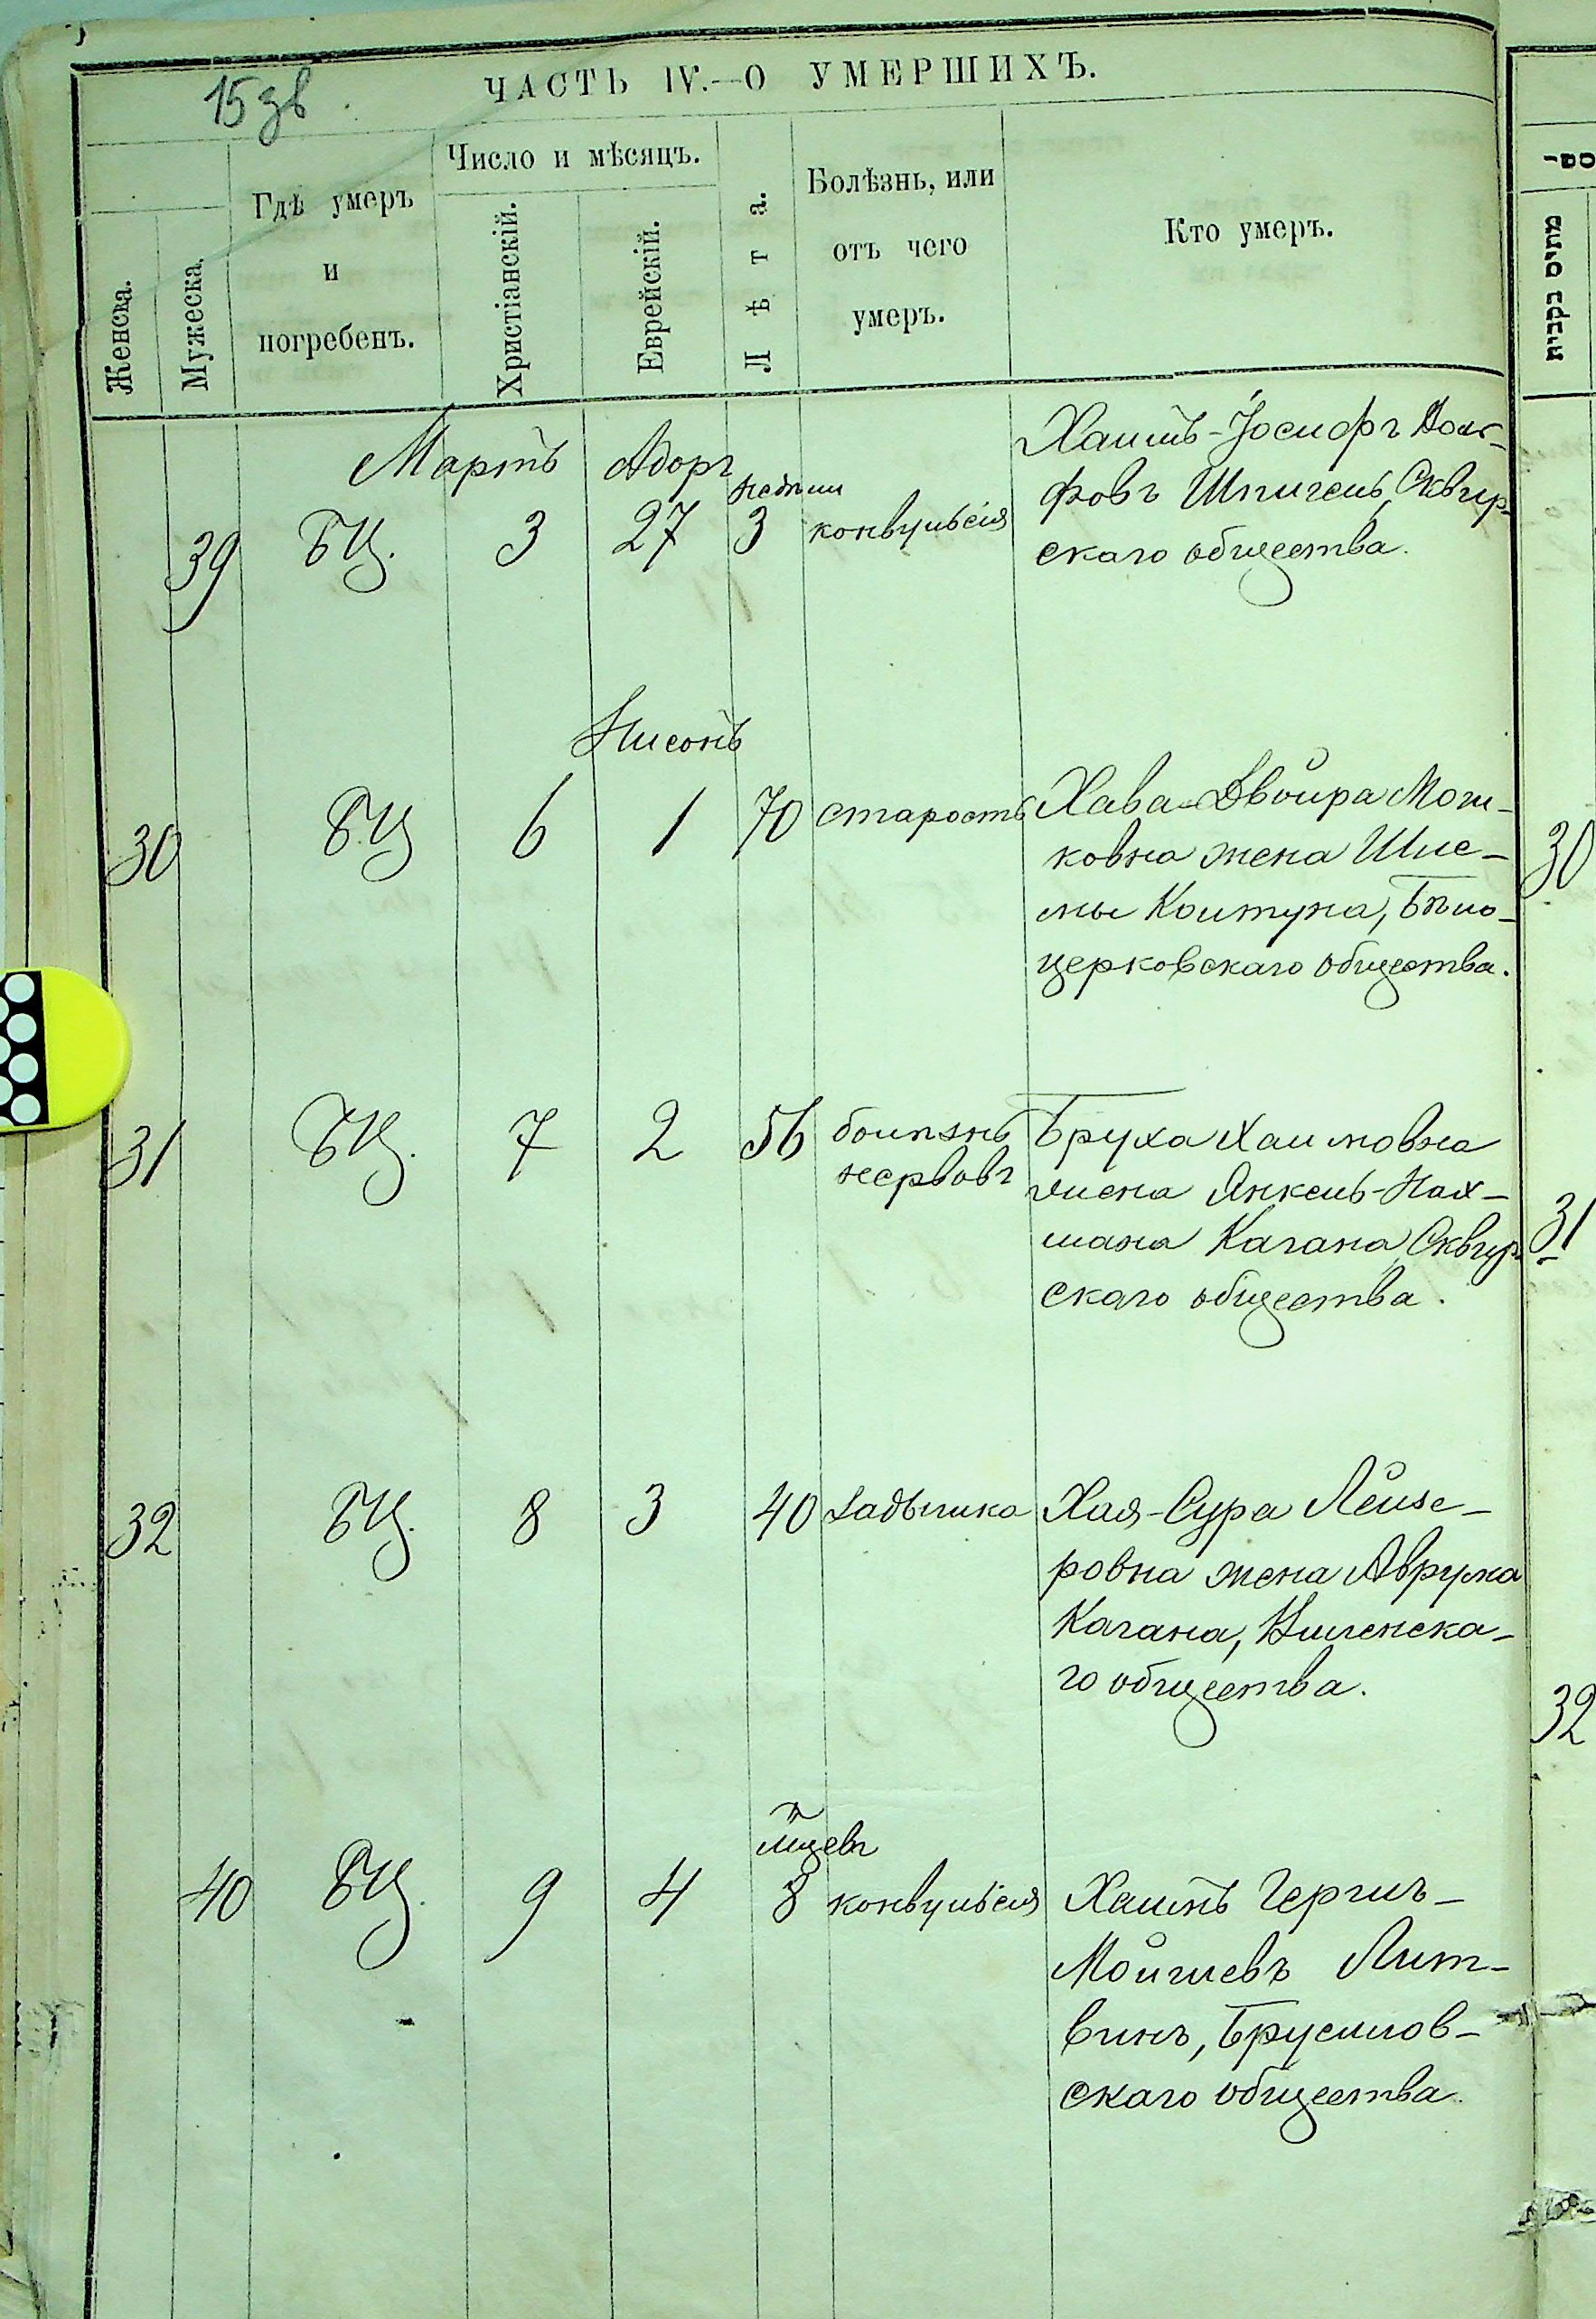 15 зв.
ЧАСТЬ IV.—О УМЕРШИХЪ.
Женска.
Мужеска.
Гдѣ умеръ
и
погребенъ.
Число и мѣсяцъ.
Христіанскій.
Еврейскій.
Лѣта.
Болѣзнь, или
отъ чего
умеръ.
Кто умеръ.
Мартъ Адоръ
39 БЦ. 3 27 недѣли 3 конвульсія
Хаимъ-Іосифъ
фовъ Шпигель, Сквир-
скаго общества.
Нисонъ
30 БЦ 6 1 70 старость
Хава-Двойра Мош-
ковна жена Шле-
мы Колтуна, Бѣло-
церковскаго общества.
30
31 БЦ. 7 2 56 болѣзнь
нервовъ
Бруха Хаимовна
жена Янкель-Нах-
мана Кагана, Сквир-
скаго общества.
31
32 БЦ. 8 3 40 задышка
Хая-Сура Лейзе-
ровна жена Аврума
Кагана,
го общества.
32
40 БЦ. 9 4 мцевъ 8 конвульсія
Хаимъ Гершъ-
Мойшевъ Лит-
винъ, Брусилов-
скаго общества.